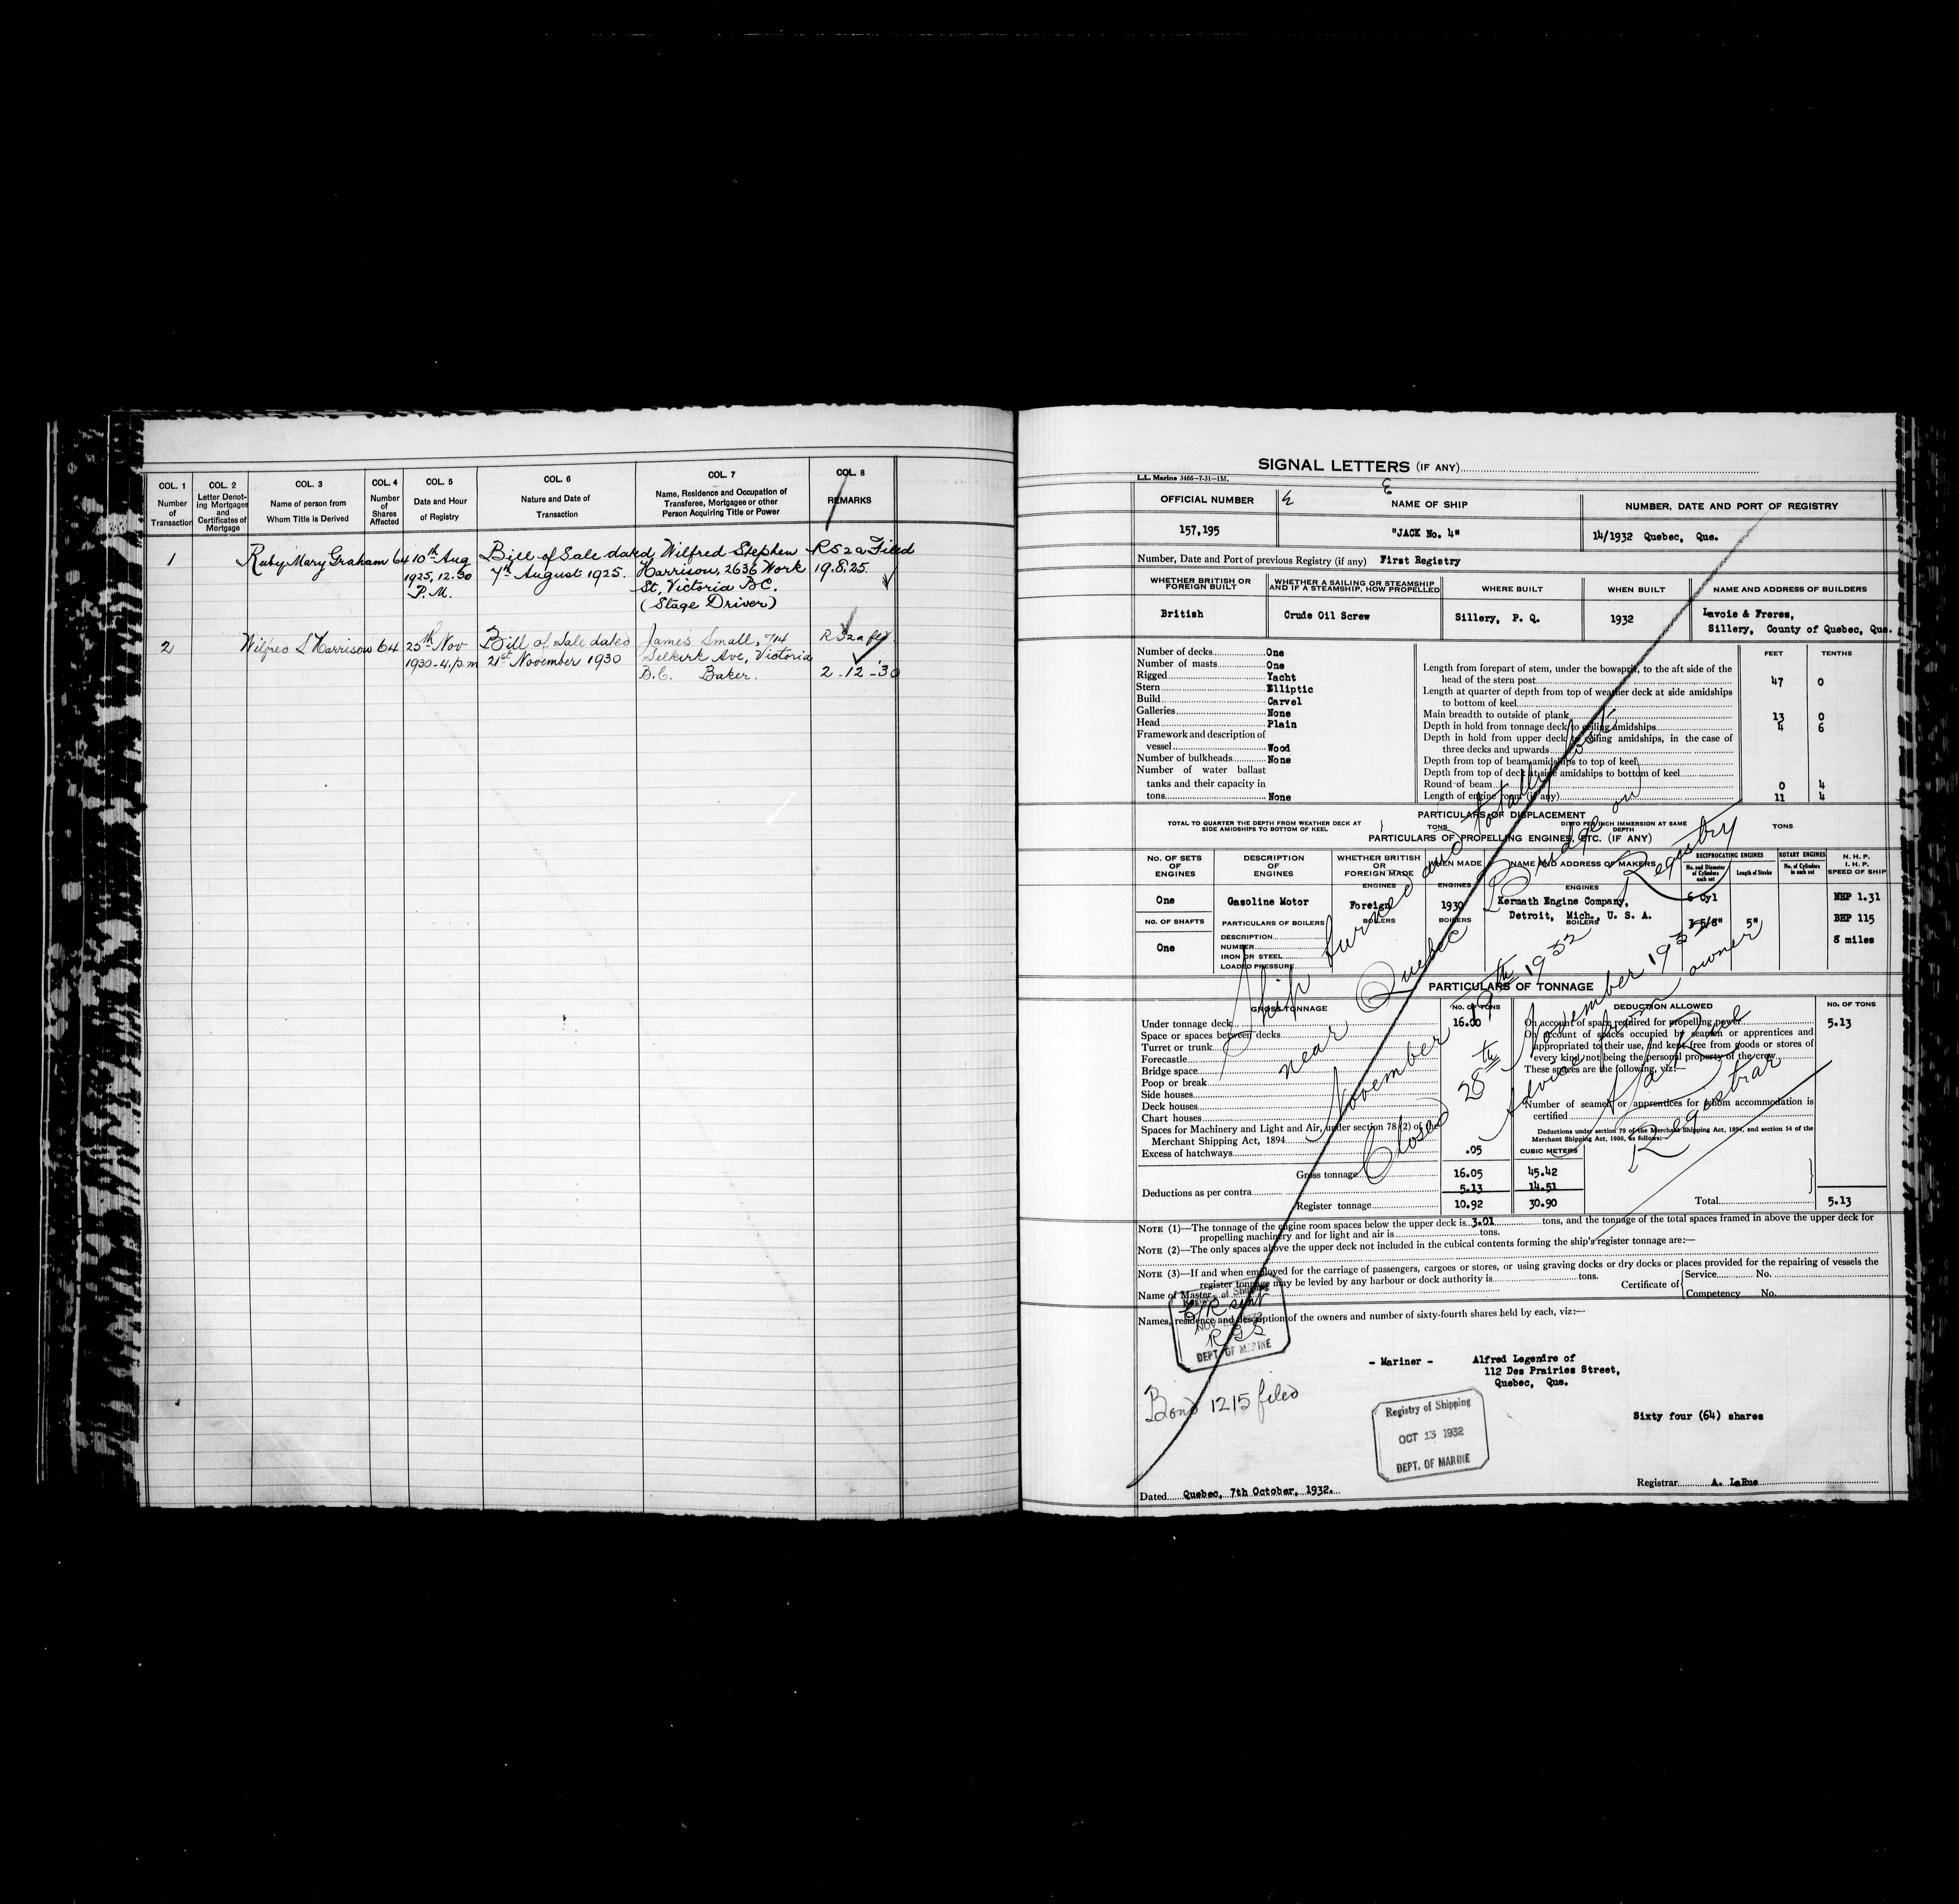 COL. 1
Number
of
Transaction
COL. 2
Letter Denot-
ing Mortgages
and
Certificates of
Mortgage
COL. 3
Name of person from
Whom Title is Derived
COL. 4
Number
of
Shares
Affected
COL. 5
Date and Hour
of Registry
COL. 6
Nature and Date of
Transaction
COL. 7
Name, Residence and Occupation of
Transferee, Mortgagee or other
Person Acquiring Title or Power
COL. 8
REMARKS
1 Ruby Mary Graham 64 10th Aug Bill of Sale dated Wilfred Stephen R52a Filed
1925, 12.30 7th August 1925. Harrison, 2636 Work 19.8.25.
P.M. St, Victoria BC.
(Stage Driver)
2 Wilfred S Harrison 64 25th Nov Bill of Sale dated James Small, 714 R52a
1930-4.p.m 21st November 1930 Selkirk Ave, Victoria
B.C. Baker. 2-12-30
SIGNAL LETTERS (IF ANY)
L.L. Marine 3466-7-31-1M.
OFFICIAL NUMBER
NAME OF SHIP
NUMBER, DATE AND PORT OF REGISTRY
157,195
"JACK No. 4"
14/1932 Quebec, Que.
Number, Date and Port of previous Registry (if any) First Registry
WHETHER BRITISH OR
FOREIGN BUILT
WHETHER A SAILING OR STEAMSHIP
AND IF A STEAMSHIP, HOW PROPELLED
WHERE BUILT
WHEN BUILT
NAME AND ADDRESS OF BUILDERS
British
Crude Oil Screw
Sillery, P. Q.
1932
Lavoie & Freres,
Sillery, County of Quebec, Que.
Number of decks One
Number of masts One
Rigged Yacht
Stern Elliptic
Build Carvel
Galleries None
Head Plain
Framework and description of
vessel Wood
Number of bulkheads None
Number of water ballast
tanks and their capacity in
tons None
FEET TENTHS
Length from forepart of stem, under the bowsprit, to the aft side of the
head of the stern post 47 0
Length at quarter of depth from top of weather deck at side amidships
to bottom of keel
Main breadth to outside of plank 13 0
Depth in hold from tonnage deck to ceiling amidships 4 6
Depth in hold from upper deck to ceiling amidships, in the case of
three decks and upwards
Depth from top of beam amidships to top of keel
Depth from top of deck at side amidships to bottom of keel
Round of beam 0 4
Length of engine room (if any) 11 4
PARTICULARS OF DISPLACEMENT
TOTAL TO QUARTER THE DEPTH FROM WEATHER DECK AT
SIDE AMIDSHIPS TO BOTTOM OF KEEL
TONS
DITTO PER INCH IMMERSION AT SAME
DEPTH
TONS
PARTICULARS OF PROPELLING ENGINES, ETC. (IF ANY)
NO. OF SETS
OF
ENGINES
DESCRIPTION
OF
ENGINES
WHETHER BRITISH
OR
FOREIGN MADE
WHEN MADE
NAME AND ADDRESS OF MAKERS
RECIPROCATING ENGINES
No. and Diameter
of Cylinders
each set
Length of Stroke
ROTARY ENGINES
No. of Cylinders
in each set
N. H. P.
I. H. P.
SPEED OF SHIP
ENGINES ENGINES ENGINES
One
Gasoline Motor
Foreign
1930
Kermath Engine Company,
Detroit, Mich., U. S. A.
6 cyl
3 5/8"
5"
NHP 1.31
BHP 115
8 miles
NO. OF SHAFTS
One
PARTICULARS OF BOILERS
BOILERS BOILERS BOILERS
DESCRIPTION
NUMBER
IRON OR STEEL
LOADED PRESSURE
PARTICULARS OF TONNAGE
GROSS TONNAGE
NO. OF TONS
DEDUCTION ALLOWED
NO. OF TONS
Under tonnage deck 16.00
Space or spaces between decks
Turret or trunk
Forecastle
Bridge space
Poop or break
Side houses
Deck houses
Chart houses
Spaces for Machinery and Light and Air, under section 78 (2) of the
Merchant Shipping Act, 1894
Excess of hatchways .05
CUBIC METERS
Gross tonnage 16.05 45.42
Deductions as per contra 5.13 14.51
Register tonnage 10.92 30.90
On account of space required for propelling power 5.13
On account of spaces occupied by seamen or apprentices and
appropriated to their use, and kept free from goods or stores of
every kind not being the personal property of the crew
These spaces are the following, viz:—
Number of seamen or apprentices for whom accommodation is
certified
Deductions under section 79 of the Merchant Shipping Act, 1894, and section 54 of the
Merchant Shipping Act, 1906, as follows:—
Total 5.13
Ship burned and totally lost
near Quebec Bridge on
November 19th 1932
Closed 28th November 1932
Registry
Advice from owner
A. LaRue
Registrar
NOTE (1)—The tonnage of the engine room spaces below the upper deck is 3.01 tons, and the tonnage of the total spaces framed in above the upper deck for
propelling machinery and for light and air is tons.
NOTE (2)—The only spaces above the upper deck not included in the cubical contents forming the ship's register tonnage are:—
NOTE (3)—If and when employed for the carriage of passengers, cargoes or stores, or using graving docks or dry docks or places provided for the repairing of vessels the
register tonnage may be levied by any harbour or dock authority is tons.
Name of Master
Certificate of
Service No.
Competency No.
Names, residence and description of the owners and number of sixty-fourth shares held by each, viz:—
Registry of Shipping
C/R sent
NOV
RGS
DEPT. OF MARINE
- Mariner - Alfred Legendre of
112 Des Prairies Street,
Quebec, Que.
Bond 1215 filed
Registry of Shipping
OCT 13 1932
DEPT. OF MARINE
Sixty four (64) shares
Dated Quebec, 7th October, 1932.
Registrar A. LaRue